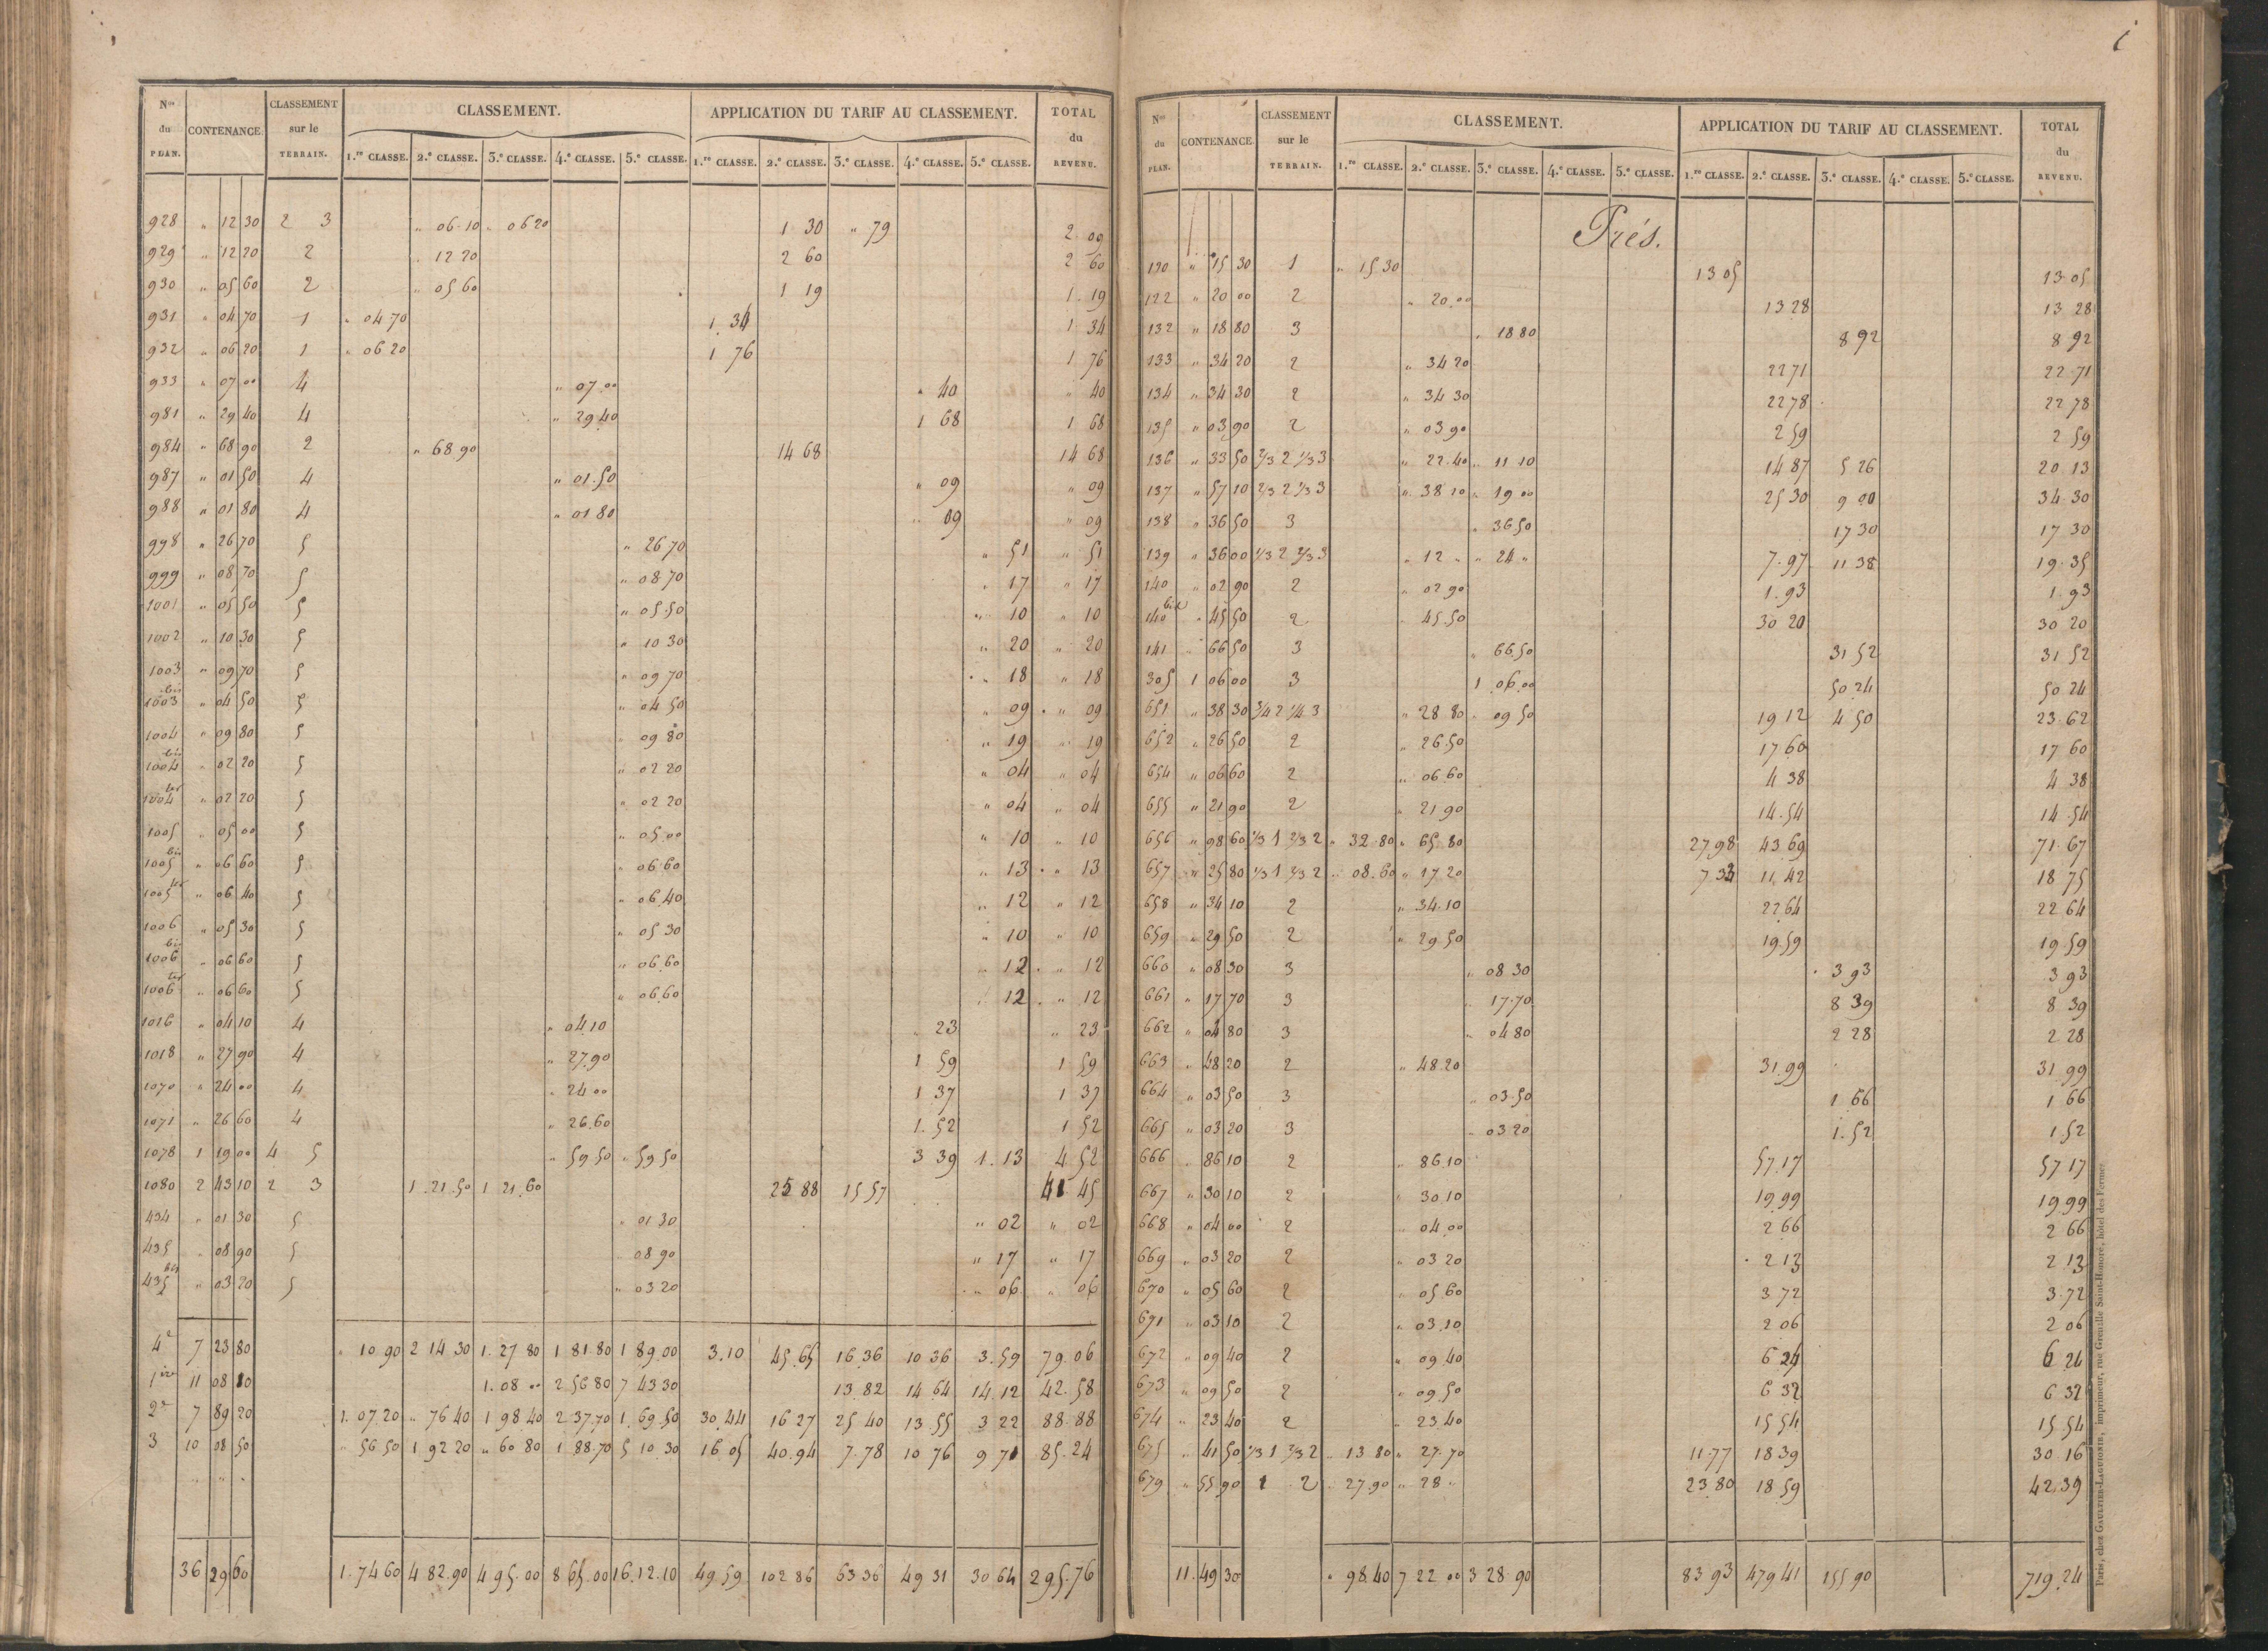 Nos du PLAN. CONTENANCE. CLASSEMENT sur le TERRAIN. CLASSEMENT. APPLICATION DU TARIF AU CLASSEMENT. TOTAL du REVENU.
1.re CLASSE. 2.e CLASSE. 3.e CLASSE. 4.e CLASSE. 5.e CLASSE. 1.re CLASSE. 2.e CLASSE. 3.e CLASSE. 4.e CLASSE. 5.e CLASSE.
928 " 12 30 2 3 " 06 10 " 06 20 1 30 " 79 2 09
929 " 12 20 2 " 12 20 2 60 2 60
930 " 05 60 2 " 05 60 1 19 1 19
931 " 04 70 1 " 04 70 1 34 1 34
932 " 06 20 1 " 06 20 1 76 1 76
933 " 07 00 4 " 07 00 " 40 " 40
981 " 29 40 4 " 29 40 1 68 1 68
984 " 68 90 2 " 68 90 14 68 14 68
987 " 01 50 4 " 01 50 " 09 " 09
988 " 01 80 4 " 01 80 " 09 " 09
998 " 26 70 5 " 26 70 " 51 " 51
999 " 08 70 5 " 08 70 " 17 " 17
1001 " 05 50 5 " 05 50 " 10 " 10
1002 " 10 30 5 " 10 30 " 20 " 20
1003 " 09 70 5 " 09 70 " 18 " 18
1003 bis " 04 50 5 " 04 50 " 09 " 09
1004 " 09 80 5 " 09 80 " 19 " 19
1004 bis " 02 20 5 " 02 20 " 04 " 04
1004 ter " 02 20 5 " 02 20 " 04 " 04
1005 " 05 00 5 " 05 00 " 10 " 10
1005 bis " 06 60 5 " 06 60 " 13 " 13
1005 ter " 06 40 5 " 06 40 " 12 " 12
1006 " 05 30 5 " 05 30 " 10 " 10
1006 bis " 06 60 5 " 06 60 " 12 " 12
1006 ter " 06 60 5 " 06 60 " 12 " 12
1016 " 04 10 4 " 04 10 " 23 " 23
1018 " 27 90 4 " 27 90 1 59 1 59
1070 " 24 00 4 " 24 00 1 37 1 37
1071 " 26 60 4 " 26 60 1 52 1 52
1078 1 19 00 4 5 " 59 50 " 59 50 3 39 1 13 4 52
1080 2 43 10 2 3 1 21 50 1 21 60 25 88 15 57 41 45
434 " 01 30 5 " 01 30 " 02 " 02
435 " 08 90 5 " 08 90 " 17 " 17
435 bis " 03 20 5 " 03 20 " 06 " 06
4e 7 23 80 " 10 90 2 14 30 1 27 80 1 81 80 1 89 00 3 10 45 65 16 36 10 36 3 59 79 06
1ere 11 08 10 1 08 00 2 56 80 7 43 30 13 82 14 64 14 12 42 58
2e 7 89 20 1 07 20 " 76 40 1 98 40 2 37 70 1 69 50 30 44 16 27 25 40 13 55 3 22 88 88
3 10 08 50 " 56 50 1 92 20 " 60 80 1 88 70 5 10 30 16 05 40 94 7 78 10 76 9 71 85 24
36 29 60 1 74 60 4 82 90 4 95 00 8 65 00 16 12 10 49 59 102 86 63 36 49 31 30 64 295 76
Nos du PLAN. CONTENANCE. CLASSEMENT sur le TERRAIN. CLASSEMENT. APPLICATION DU TARIF AU CLASSEMENT. TOTAL du REVENU.
1.re CLASSE. 2.e CLASSE. 3.e CLASSE. 4.e CLASSE. 5.e CLASSE. 1.re CLASSE. 2.e CLASSE. 3.e CLASSE. 4.e CLASSE. 5.e CLASSE.
Prés.
120 " 15 30 1 " 15 30 13 05 13 05
122 " 20 00 2 " 20 00 13 28 13 28
132 " 18 80 3 " 18 80 8 92 8 92
133 " 34 20 2 " 34 20 22 71 22 71
134 " 34 30 2 " 34 30 22 78 22 78
135 " 03 90 2 " 03 90 2 59 2 59
136 " 33 50 2/3 2 1/3 3 " 22 40 " 11 10 14 87 5 26 20 13
137 " 57 10 2/3 2 1/3 3 " 38 10 " 19 00 25 30 9 00 34 30
138 " 36 50 3 " 36 50 17 30 17 30
139 " 36 00 1/3 2 2/3 3 " 12 " " 24 " 7 97 11 38 19 35
140 " 02 90 2 " 02 90 1 93 1 93
140 bis " 45 50 2 " 45 50 30 20 30 20
141 " 66 50 3 " 66 50 31 52 31 52
305 1 06 00 3 1 06 00 50 24 50 24
651 " 38 30 3/4 2 1/4 3 " 28 80 " 09 50 19 12 4 50 23 62
652 " 26 50 2 " 26 50 17 60 17 60
654 " 06 60 2 " 06 60 4 38 4 38
655 " 21 90 2 " 21 90 14 54 14 54
656 " 98 60 1/3 1 2/3 2 " 32 80 " 65 80 27 98 43 69 71 67
657 " 25 80 1/3 1 2/3 2 " 08 60 " 17 20 7 33 11 42 18 75
658 " 34 10 2 " 34 10 22 64 22 64
659 " 29 50 2 " 29 50 19 59 19 59
660 " 08 30 3 " 08 30 3 93 3 93
661 " 17 70 3 " 17 70 8 39 8 39
662 " 04 80 3 " 04 80 2 28 2 28
663 " 48 20 2 " 48 20 31 99 31 99
664 " 03 50 3 " 03 50 1 66 1 66
665 " 03 20 3 " 03 20 1 52 1 52
666 " 86 10 2 " 86 10 57 17 57 17
667 " 30 10 2 " 30 10 19 99 19 99
668 " 04 00 2 " 04 00 2 66 2 66
669 " 03 20 2 " 03 20 2 13 2 13
670 " 05 60 2 " 05 60 3 72 3 72
671 " 03 10 2 " 03 10 2 06 2 06
672 " 09 40 2 " 09 40 6 24 6 24
673 " 09 50 2 " 09 50 6 32 6 32
674 " 23 40 2 " 23 40 15 54 15 54
675 " 41 50 1/3 1 2/3 2 " 13 80 " 27 70 11 77 18 39 30 16
679 " 55 90 1 2 " 27 90 " 28 " 23 80 18 59 42 39
11 49 30 " 98 40 7 22 00 3 28 90 83 93 479 41 155 90 719 24
Paris, chez GAULTIER-LAGUIONIE, imprimeur, rue Grenelle Saint-Honoré, hôtel des Fermes